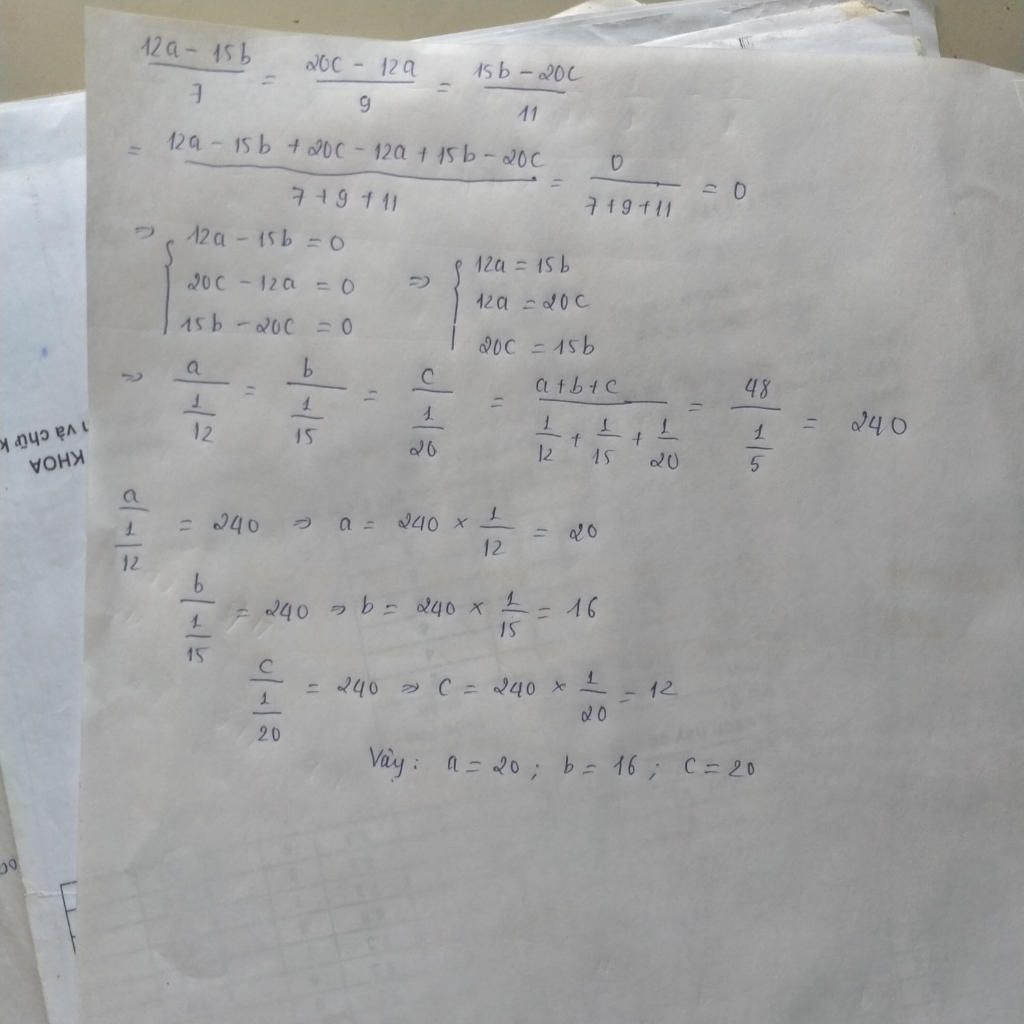 12a - 15b / 7 = 20c - 12a / 9 = 15b - 20c / 11
= 12a - 15b + 20c - 12a + 15b - 20c / 7 + 9 + 11 = 0 / 7 + 9 + 11 = 0
⇒ { 12a - 15b = 0
20c - 12a = 0
15b - 20c = 0
⇒ { 12a = 15b
12a = 20c
20c = 15b
⇒ a / (1/12) = b / (1/15) = c / (1/20) = a + b + c / (1/12 + 1/15 + 1/20) = 48 / (1/5) = 240
a / (1/12) = 240 ⇒ a = 240 × 1/12 = 20
b / (1/15) = 240 ⇒ b = 240 × 1/15 = 16
c / (1/20) = 240 ⇒ c = 240 × 1/20 = 12
Vậy: a = 20 ; b = 16 ; c = 20
và chữ k
KHOA